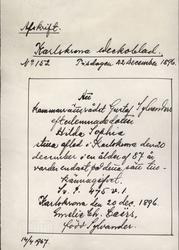 Afskrift.
Karlskrona Veckoblad.
No 152. Tisdagen 22 December 1896.
Att
kammarrättsrådet Gustaf Sylvanders
efterlemnade dotter
Hilda Sophia
stilla afled i Karlskrona den 20
december i en ålder af 87 år,
varder endast på detta sätt till-
kännagifvet.
Sv. P. 475 v. 1.
Karlskrona den 20 dec. 1896.
Emelie Ch.
född Sylvander.
14/4 1947.